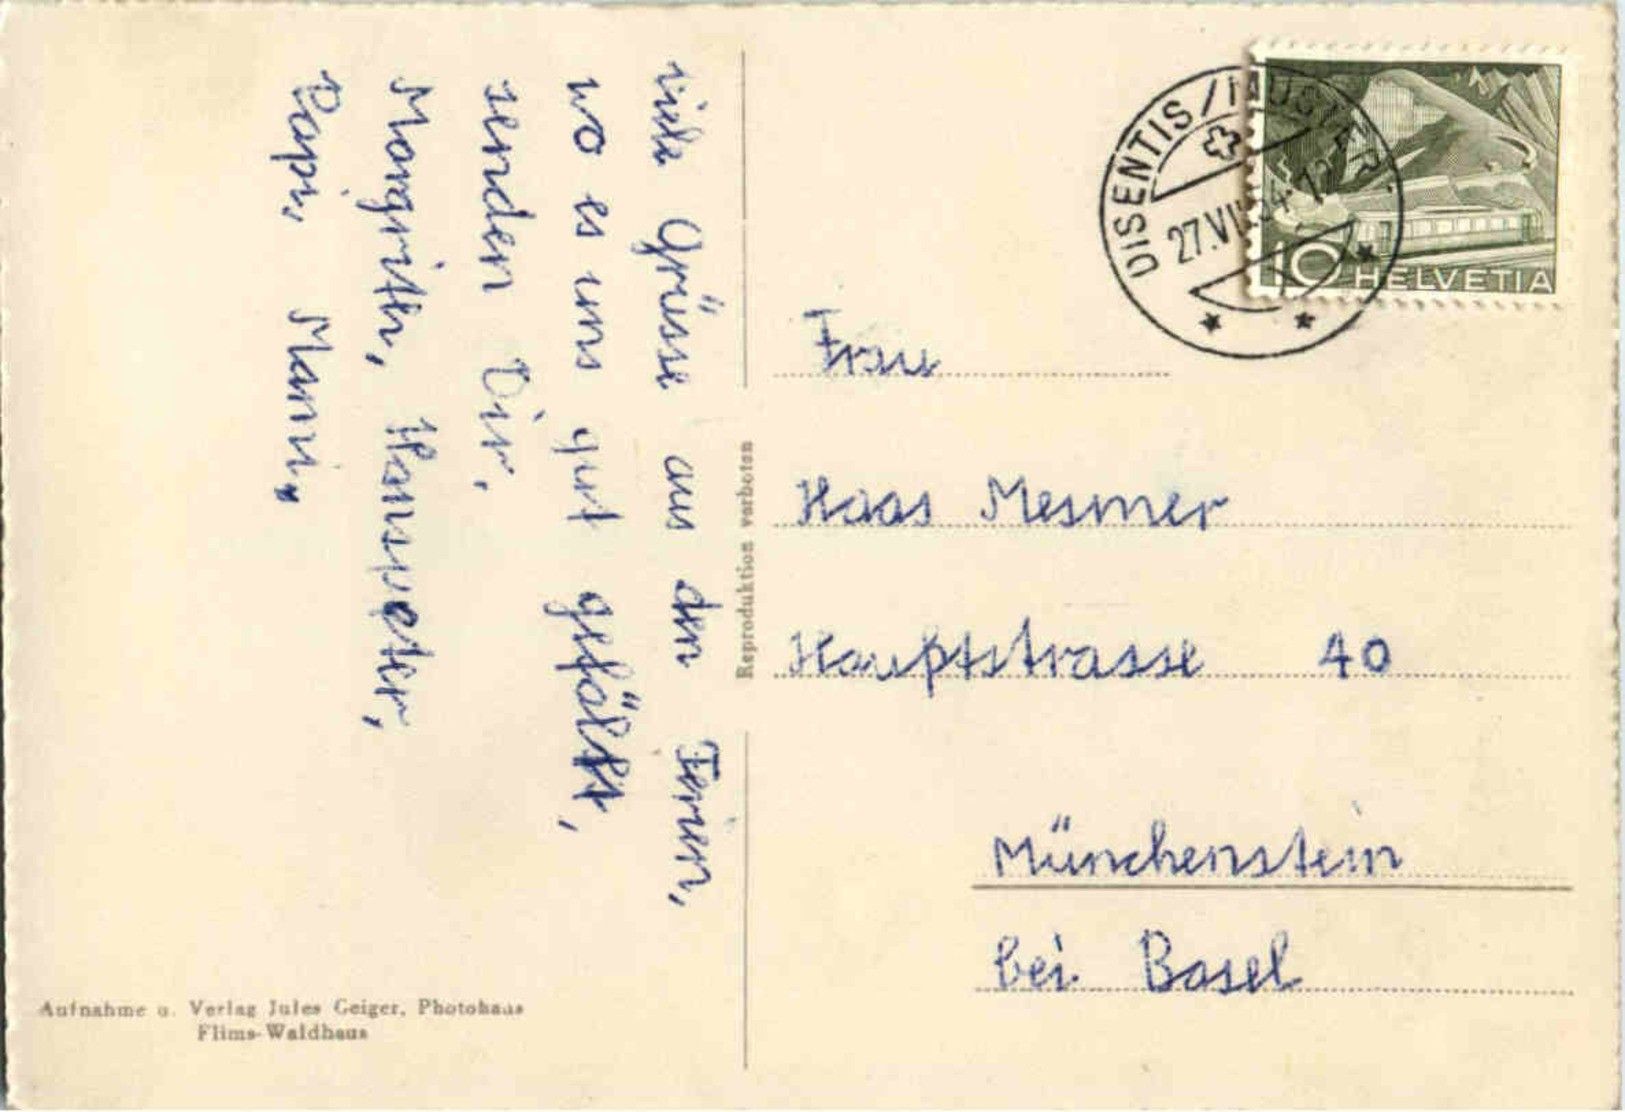 viele Grüsse aus den Ferien,
wo es uns gut gefällt,
senden Dir,
Margritli, Hanspeter,
Papi, Mami,
Reproduktion verboten
Aufnahme u. Verlag Jules Geiger, Photohaus
Flims-Waldhaus
DISENTIS/MUSTER
10 HELVETIA
Frau
Haas Mesmer
Hauptstrasse 40
Münchenstein
bei Basel